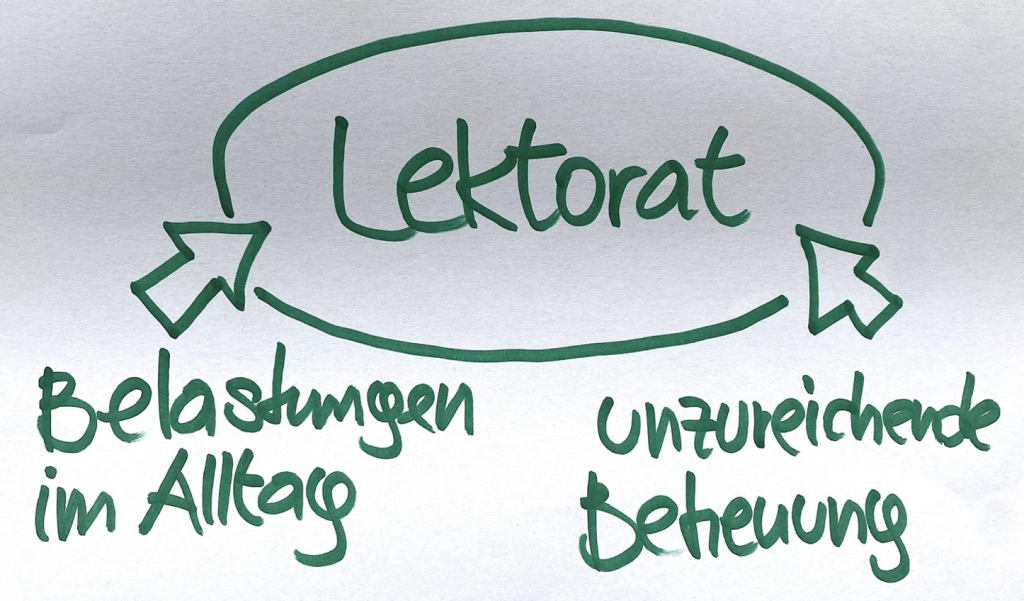 Lektorat
Belastungen
im Alltag
unzureichende
Betreuung